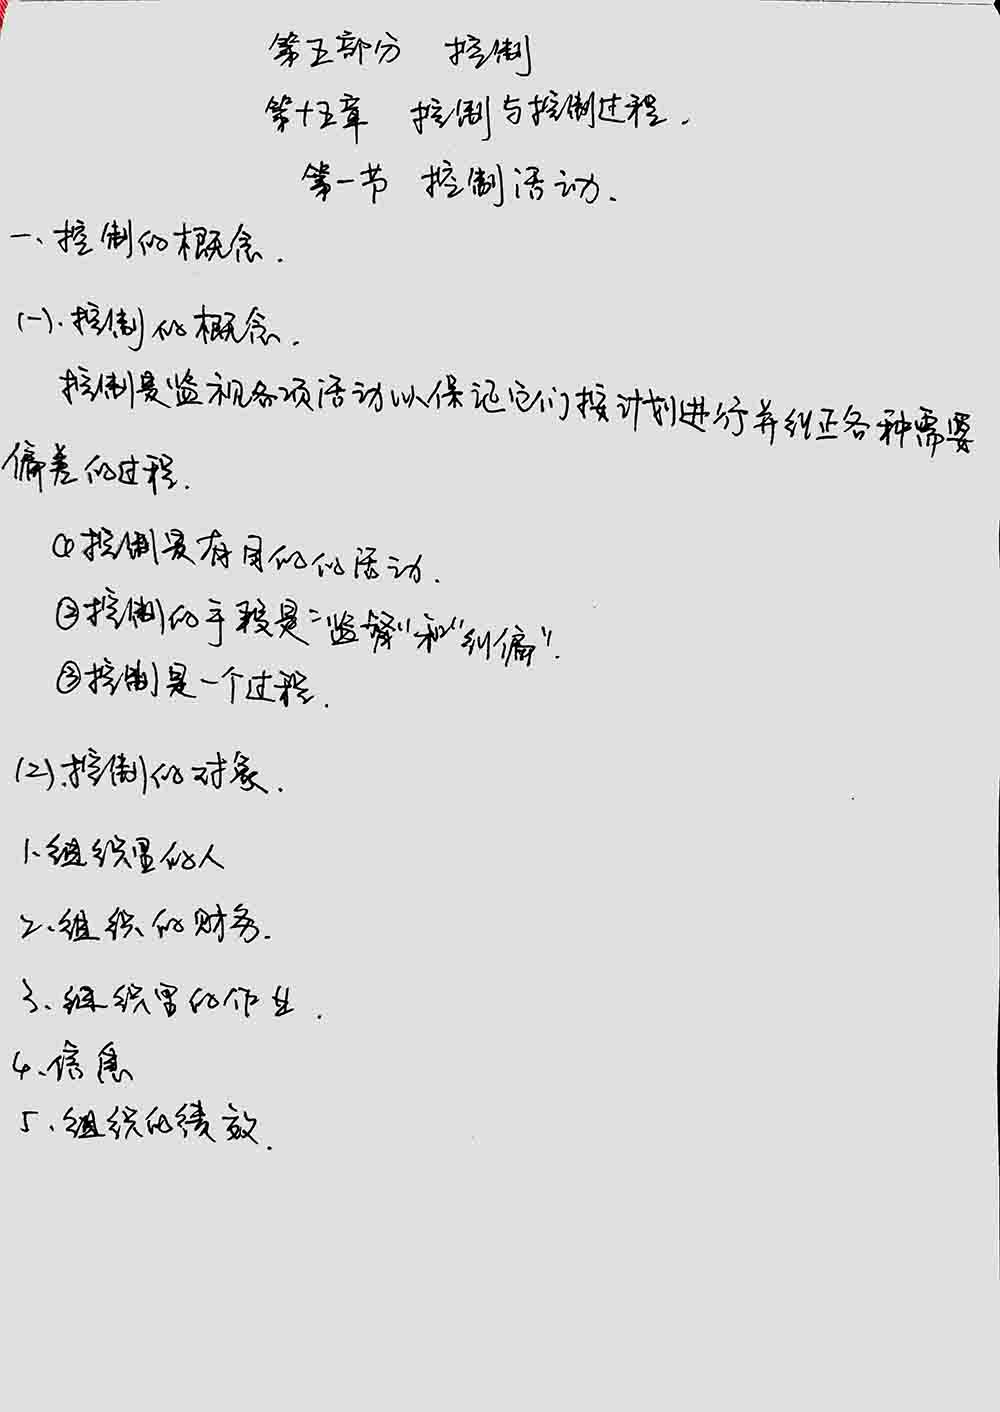 第五部分 控制
第十五章 控制与控制过程.
第一节 控制活动.
一、控制的概念.
(一).控制的概念.
控制是监视各项活动以保记它们按计划进行并纠正各种需要
偏差的过程.
①控制是有目的的活动.
②控制的手段是"监督"和"纠偏".
③控制是一个过程.
(2).控制的对象.
1、组织里的人
2、组织的财务.
3、组织里的作业.
4、信息
5、组织的绩效.